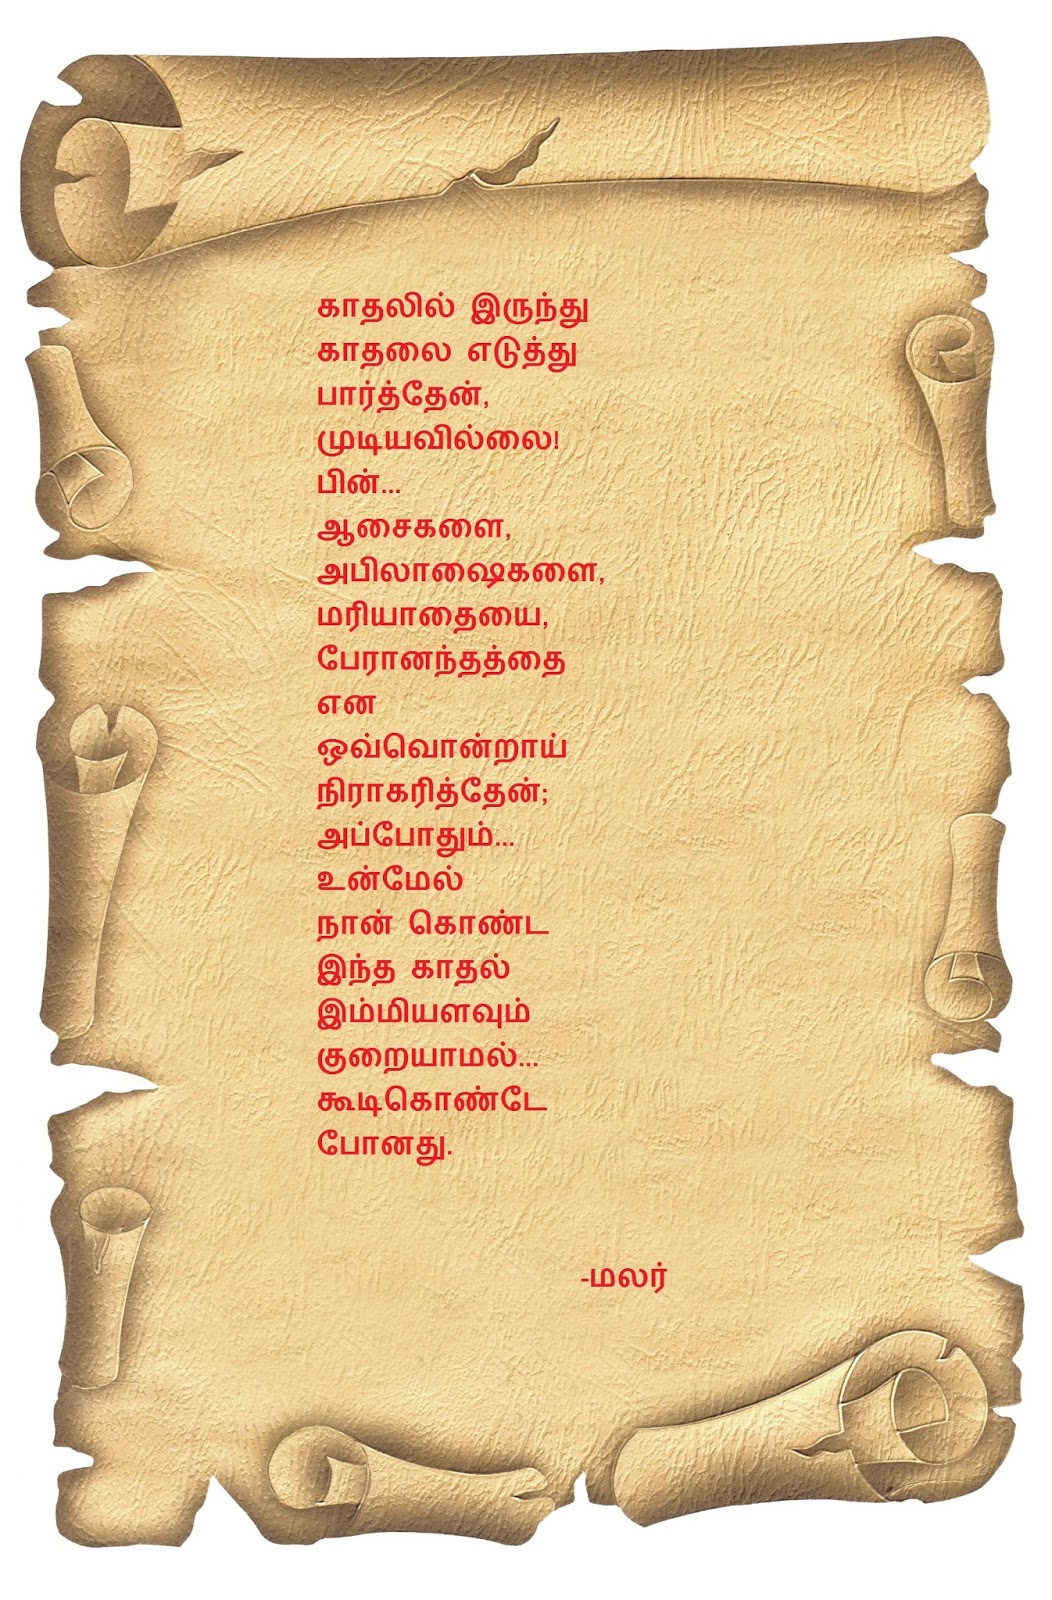 காதலில் இருந்து
காதலை எடுத்து
பார்த்தேன்,
முடியவில்லை!
பின்...
ஆசைகளை,
அபிலாஷைகளை,
மரியாதையை,
பேரானந்தத்தை
என
ஒவ்வொன்றாய்
நிராகரித்தேன்;
அப்போதும்...
உன்மேல்
நான் கொண்ட
இந்த காதல்
இம்மியளவும்
குறையாமல்...
கூடிகொண்டே
போனது.
-மலர்